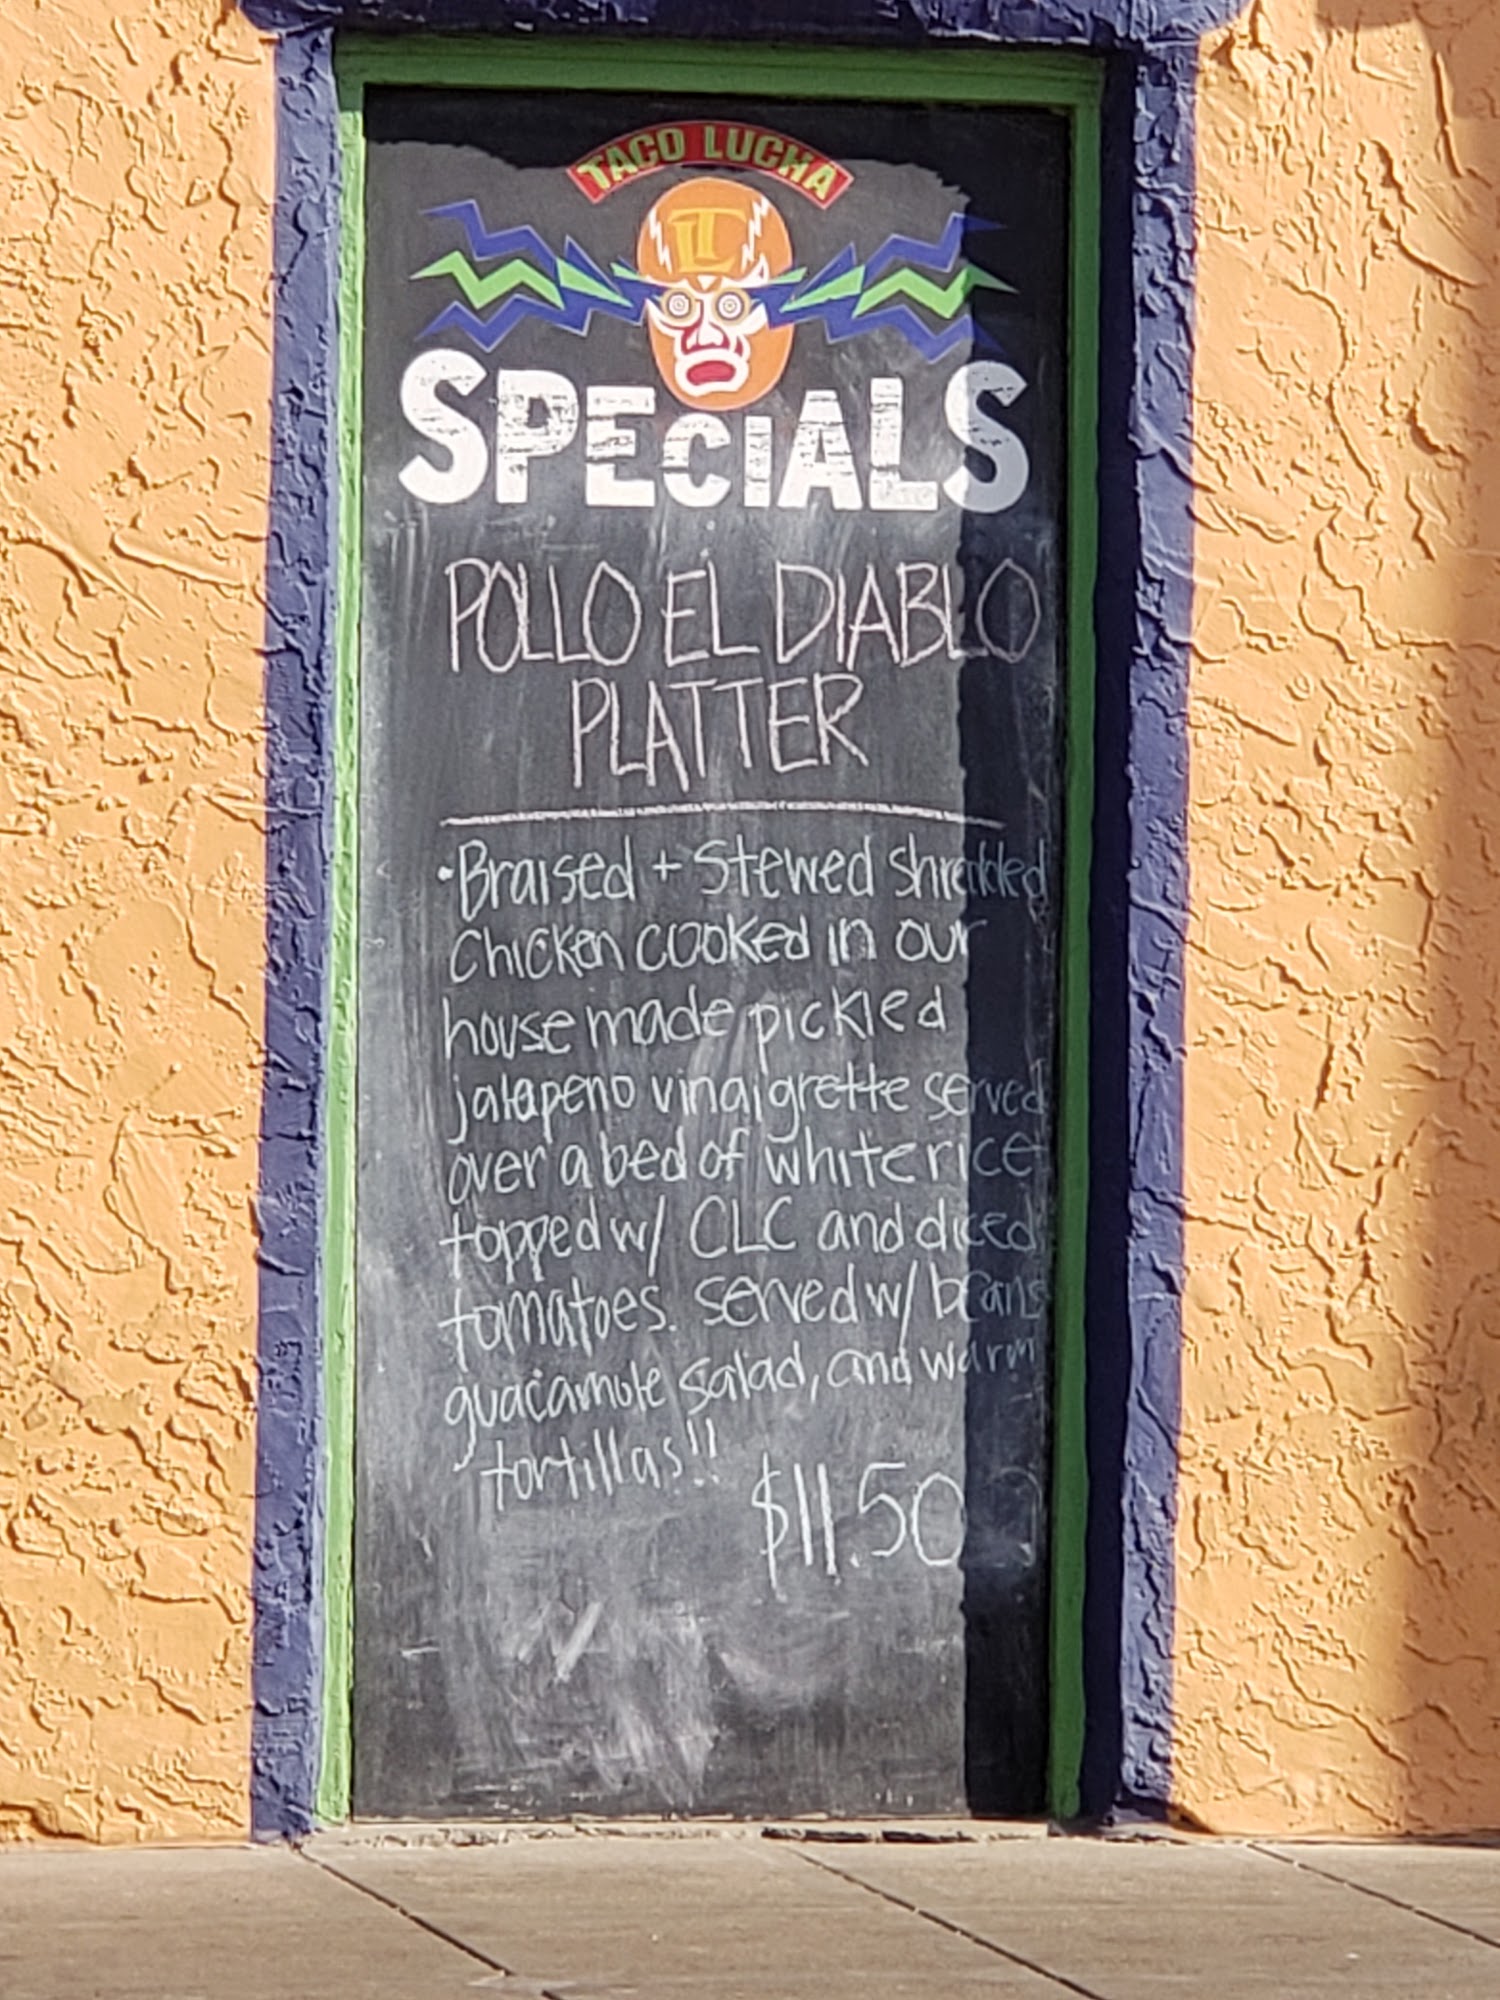 TACO LUCHA
LT
SPECIALS
POLLO EL DIABLO
PLATTER
•Braised + Stewed Shredded
Chicken cooked in our
house made pickled
jalapeno vinaigrette served
over a bed of white rice
topped w/ CLC and diced
tomatoes. Served w/ beans
guacamole salad, and warm
tortillas!!
$11.50